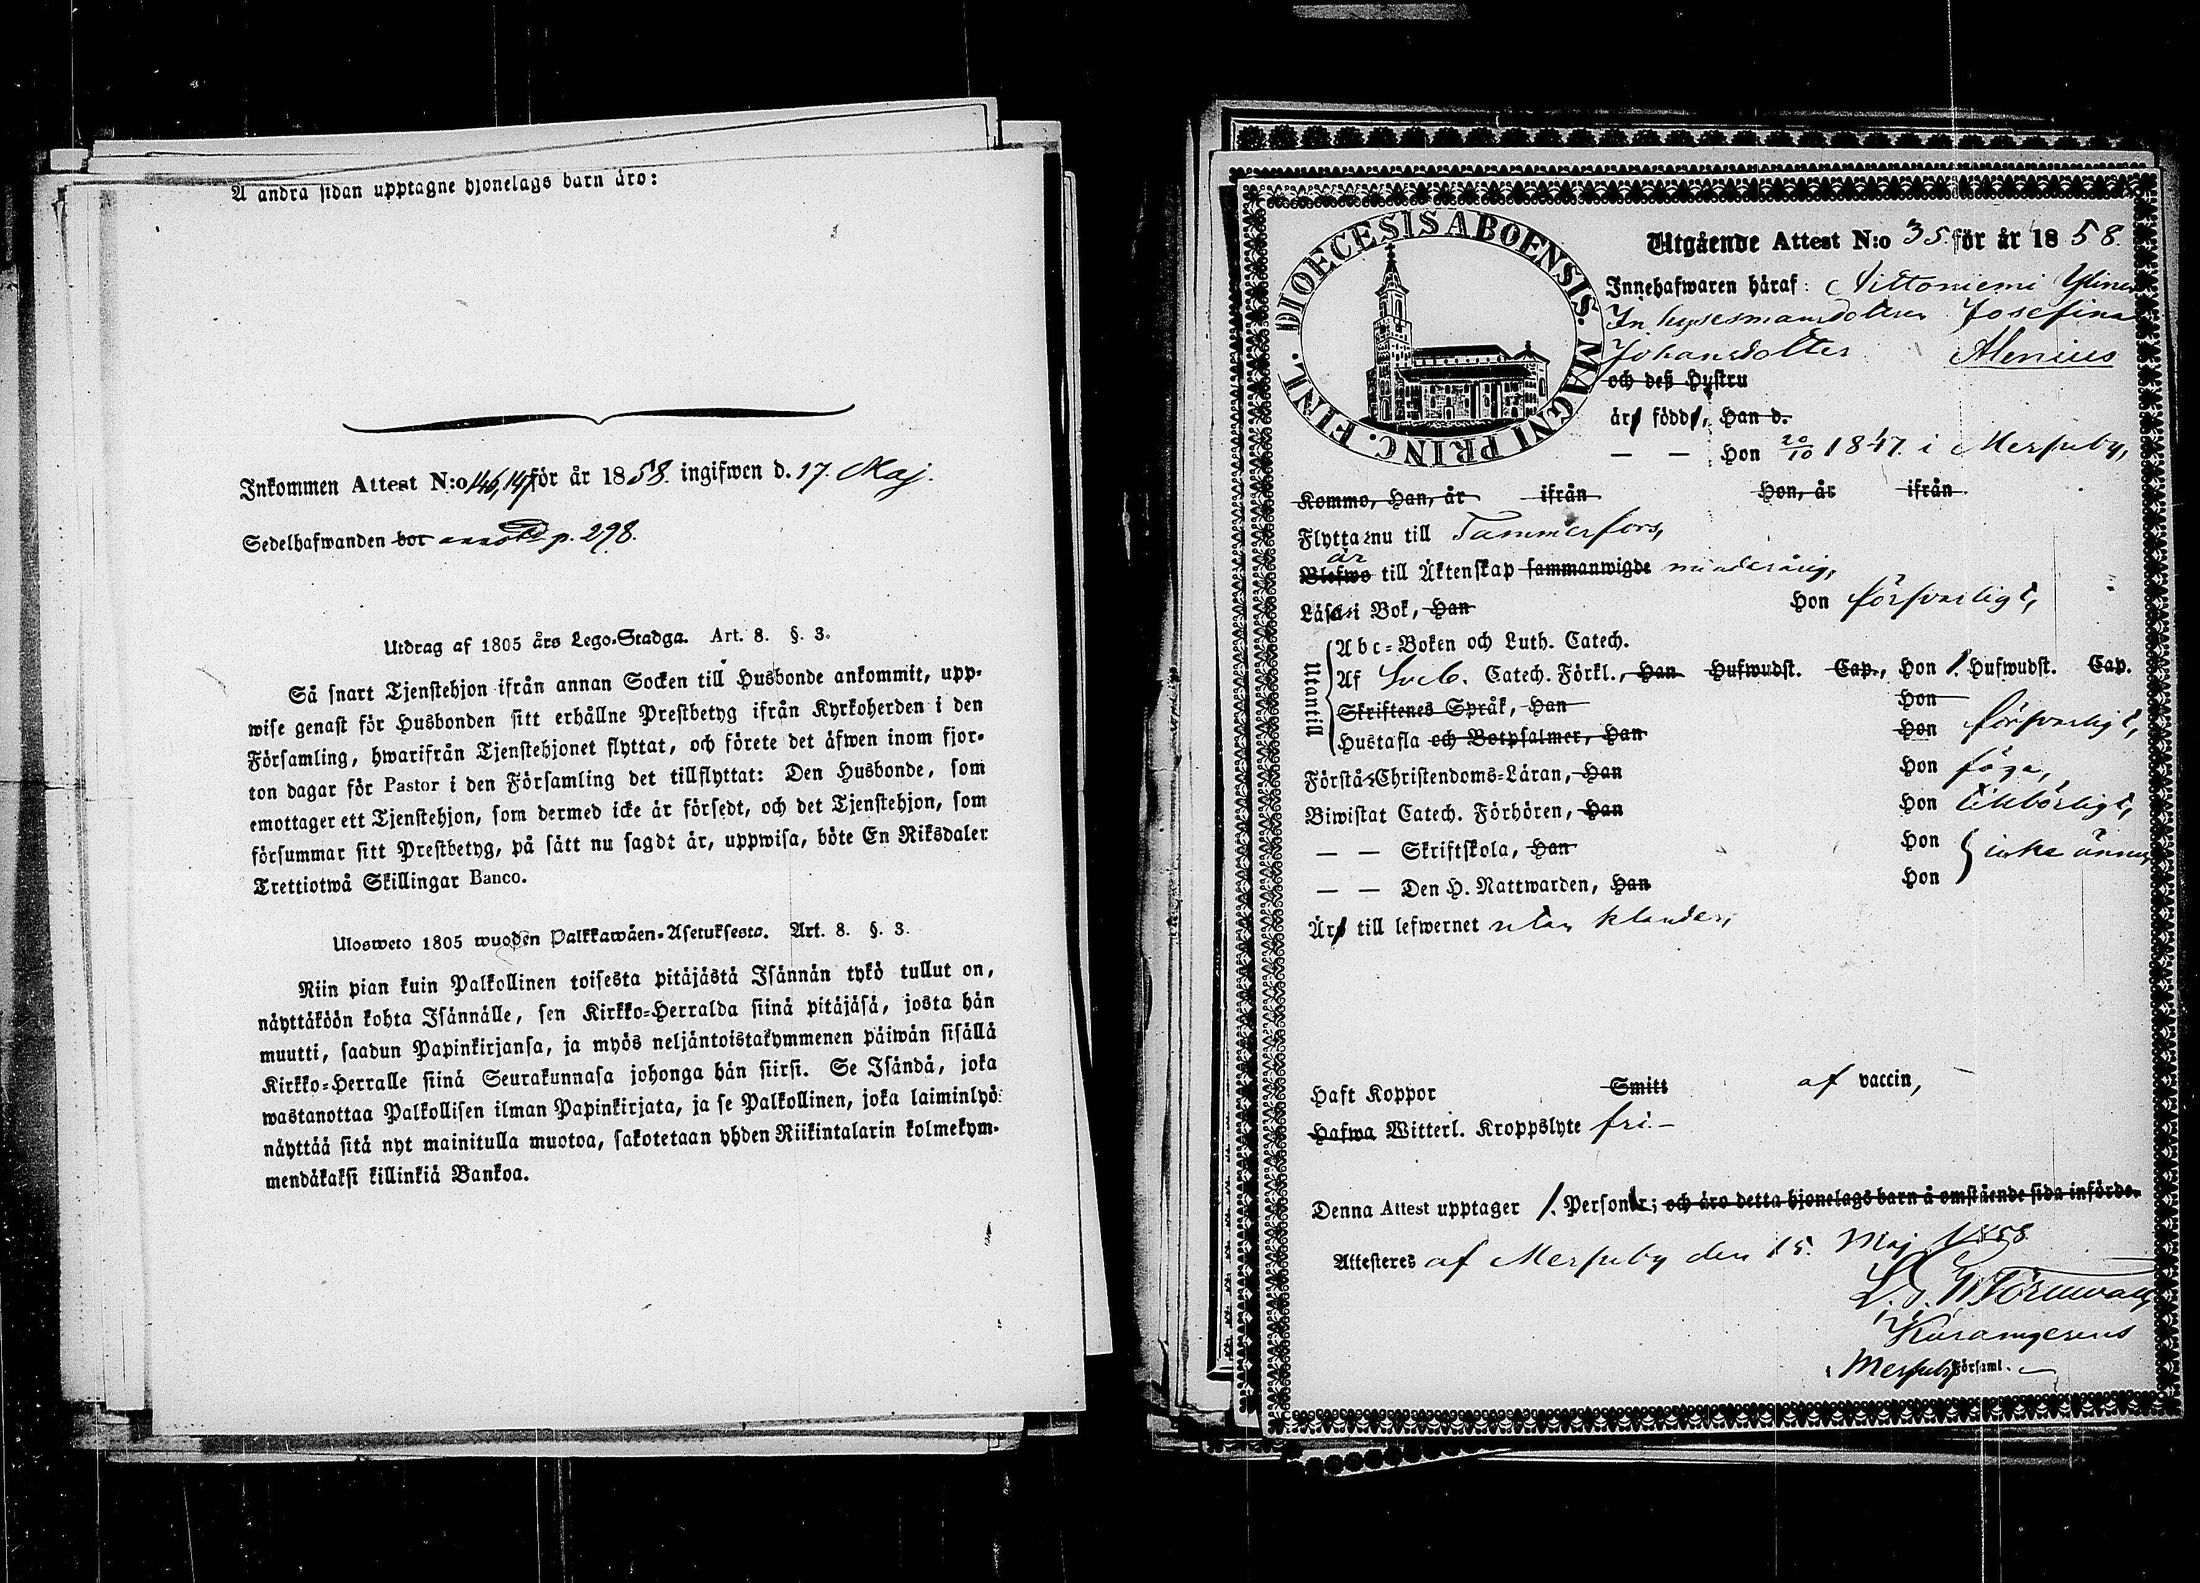 Å andra sidan upptagne hjonelags barn äro:
Inkommen Attest N:o 146, 147 för år 1858. ingifwen d. 17. Maj.
Sedelhafwanden bor p. 298.
Utdrag af 1805 års Lego-Stadga. Art. 8. §. 3.
Så snart Tjenstehjon ifrån annan Socken till Husbonde ankommit, upp-
wise genast för Husbonden sitt erhållne Prestbetyg ifrån Kyrkoherden i den
Församling, hwarifrån Tjenstehjonet flyttat, och förete det äfwen inom fjor-
ton dagar för Pastor i den Församling det tillflyttat: Den Husbonde, som
emottager ett Tjenstehjon, som dermed icke är försedt, och det Tjenstehjon, som
försummar sitt Prestbetyg, på sätt nu sagdt är, uppwisa, böte En Riksdaler
Trettiotwå Skillingar Banco.
Ulosweto 1805 wuoden Palkkawäen-Asetuksesta. Art. 8. §. 3.
Niin pian kuin Palkollinen toisesta pitäjästä Isännän tykö tullut on,
näyttäköön kohta Isännälle, sen Kirkko-Herralda siinä pitäjäsä, josta hän
muutti, saadun Papinkirjansa, ja myös neljäntoistakymmenen päiwän sisällä
Kirkko-Herralle siinä Seurakunnasa johonga hän siirsi. Se Isändä, joka
wastanottaa Palkollisen ilman Papinkirjata, ja se Palkollinen, joka laiminlyö
näyttää sitä nyt mainitulla muotoa, sakotetaan yhden Riikintalarin kolmekym-
mendäkaksi killinkiä Bankoa.
DIOECESIS ABOENSIS. MAGNI PRINC. FINL.
Utgående Attest N:o 35. för år 1858.
Innehafwaren häraf:
Inhysesmansdottren Josefina
Johansdotter Alenius
och deß Hustru
äro födde, Han d.
— — Hon 20/10 1847. i Messuby,
Komme, Han, år ifrån Hon, år ifrån
Flytta nu till Tammerfors,
är
Blefwo till Äktenskap sammanwigde minderårig,
Läsa i Bok, Han Hon försvarligt,
Utantill
Abc-Boken och Luth. Catech.
Af Sveb. Catech. Förkl., Han Hufwudst. Cap., Hon 1. Hufwudst. Cap.
Skriftenes Språk, Han Hon
Hustafla och Botpsalmer, Han Hon försvarligt,
Förstå Christendoms-Läran, Han Hon föga,
Biwistat Catech. Förhören, Han Hon tillbörligt,
— — Skriftskola, Han Hon icke ännu
— — Den H. Nattwarden, Han Hon
Äro till lefwernet utan klander,
Haft Koppor Smitt af vaccin,
Hafwa Witterl. Kroppslyte fri. –
Denna Attest upptager 1. Personer; och äro detta hjonelags barn å omstående sida införde.
Attesteres af Messuby den 15. Maj 1858.
Törnwall
Messuby Församl.